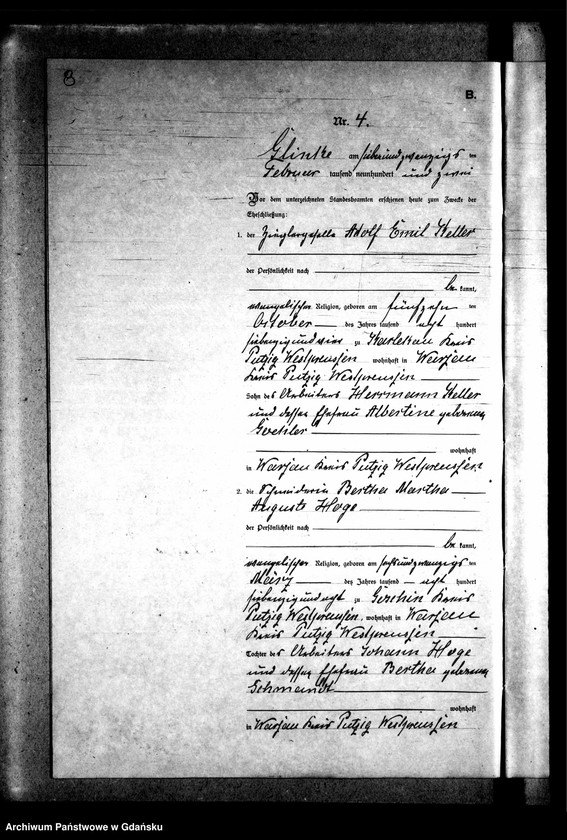 8
B.
Nr. 4.
Glinke am siebenundzwanzigsten
Februar tausend neunhundert und zwei
Vor dem unterzeichneten Standesbeamten erschienen heute zum Zwecke der
Eheschließung:
1. der Zieglergeselle Adolf Emil Keller
der Persönlichkeit nach
be kannt,
evangelischer Religion, geboren am fünfzehnten
October des Jahres tausend acht hundert
siebenzigundvier zu Kreis
Putzig Westpreussen wohnhaft in Warzau
Kreis Putzig Westpreussen
Sohn des Arbeiters Herrmann Keller
und dessen Ehefrau Albertine geborenen
wohnhaft
in Warzau Kreis Putzig Westpreussen
2. die Schneiderin Bertha Martha
Auguste Hoge
der Persönlichkeit nach
be kannt,
evangelischer Religion, geboren am sechsundzwanzigsten
März des Jahres tausend acht hundert
siebenzigundacht zu Kreis
Putzig Westpreussen, wohnhaft in Warzau
Kreis Putzig Westpreussen
Tochter des Arbeiters Johann Hoge
und dessen Ehefrau Bertha geborenen
Schmandt
wohnhaft
in Warzau Kreis Putzig Westpreussen
Archiwum Państwowe w Gdańsku